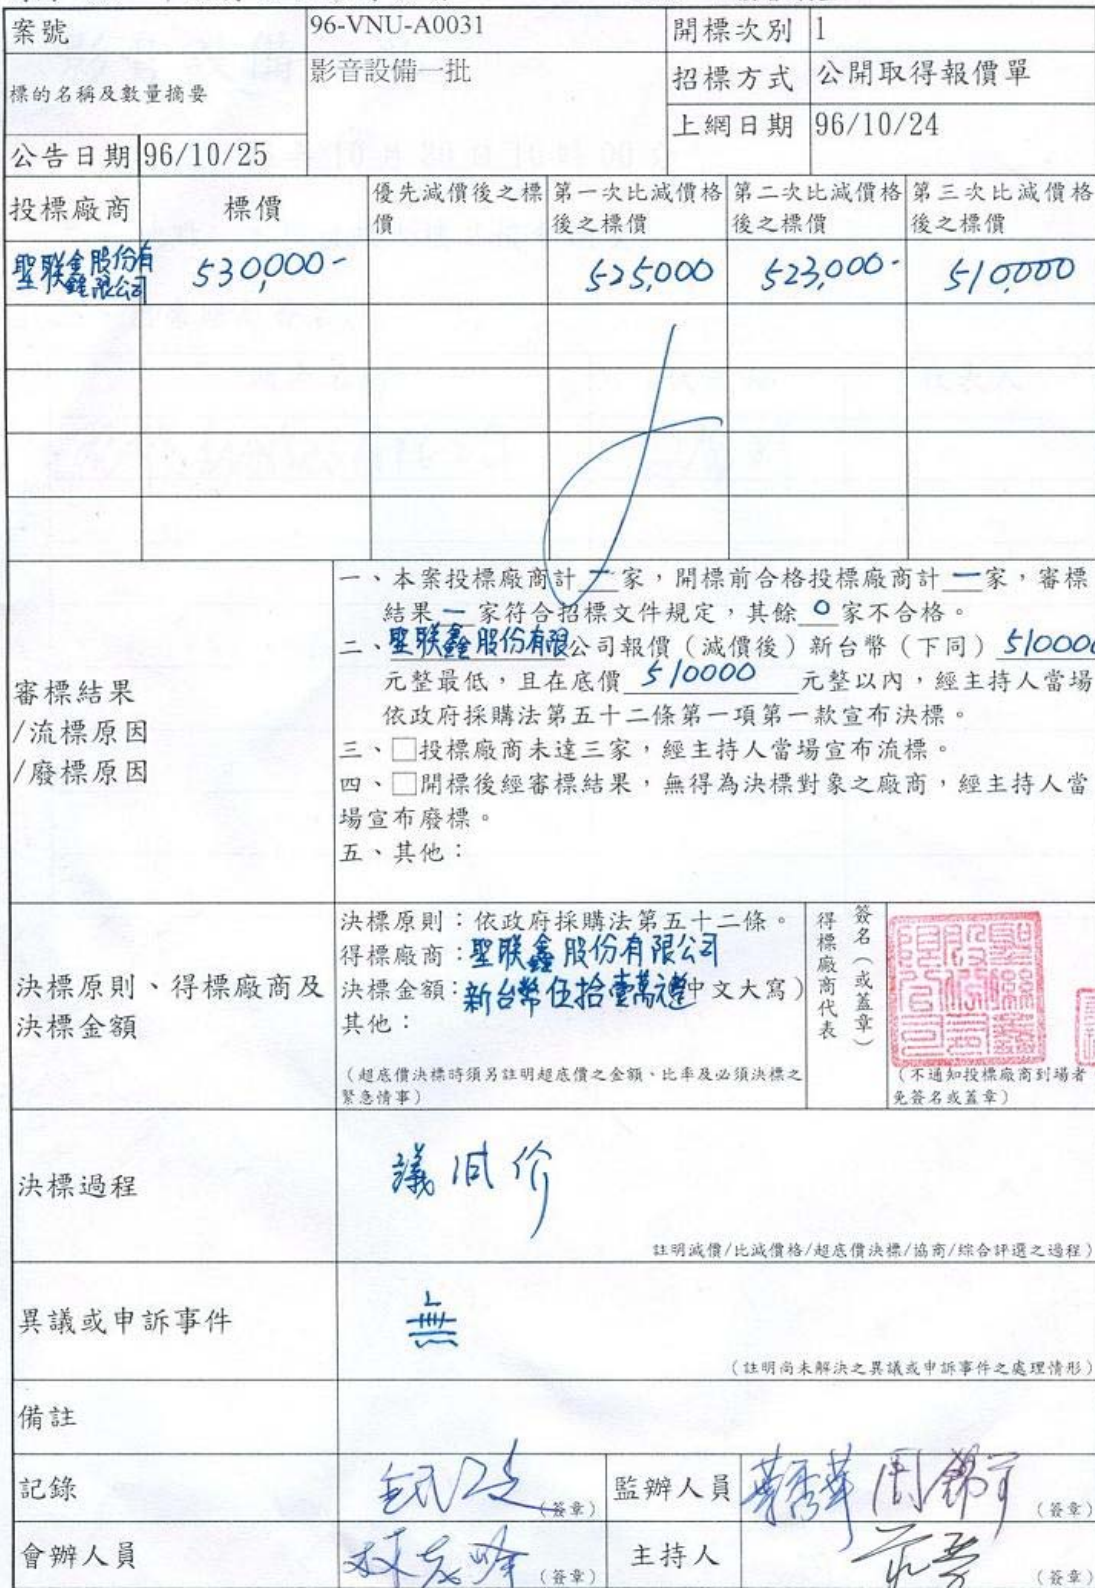 案號 96-VNU-A0031 開標次別 1
標的名稱及數量摘要 影音設備一批 招標方式 公開取得報價單
上網日期 96/10/24
公告日期 96/10/25
投標廠商 標價 優先減價後之標價 第一次比減價格後之標價 第二次比減價格後之標價 第三次比減價格後之標價
聖联鑫股份有限公司 530,000- 525,000 523,000- 510,000
審標結果
/流標原因
/廢標原因
一、本案投標廠商計 一 家,開標前合格投標廠商計 一 家,審標
結果 一 家符合招標文件規定,其餘 0 家不合格。
二、聖联鑫股份有限公司報價(減價後)新台幣(下同) 510000
元整最低,且在底價 510000 元整以內,經主持人當場
依政府採購法第五十二條第一項第一款宣布決標。
三、□投標廠商未達三家,經主持人當場宣布流標。
四、□開標後經審標結果,無得為決標對象之廠商,經主持人當
場宣布廢標。
五、其他:
決標原則、得標廠商及
決標金額
決標原則:依政府採購法第五十二條。
得標廠商:聖联鑫股份有限公司
決標金額:新台幣伍拾壹萬元整(中文大寫)
其他:
(超底價決標時須另註明超底價之金額、比率及必須決標之
緊急情事)
得標廠商代表
簽名(或蓋章)
(不通知投標廠商到場者
免簽名或蓋章)
決標過程 議減价
註明減價/比減價格/超底價決標/協商/綜合評選之過程)
異議或申訴事件 無
(註明尚未解決之異議或申訴事件之處理情形)
備註
記錄 (簽章) 監辦人員 (簽章)
會辦人員 (簽章) 主持人 (簽章)